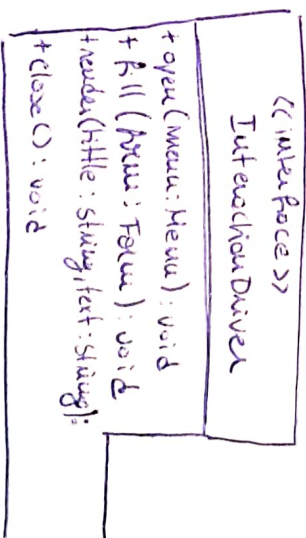 <<interface>>
InteractionDriver
+ open(menu: Menu): void
+ fill (form: Form): void
+ render(tittle: string, text: string):
+ close(): void